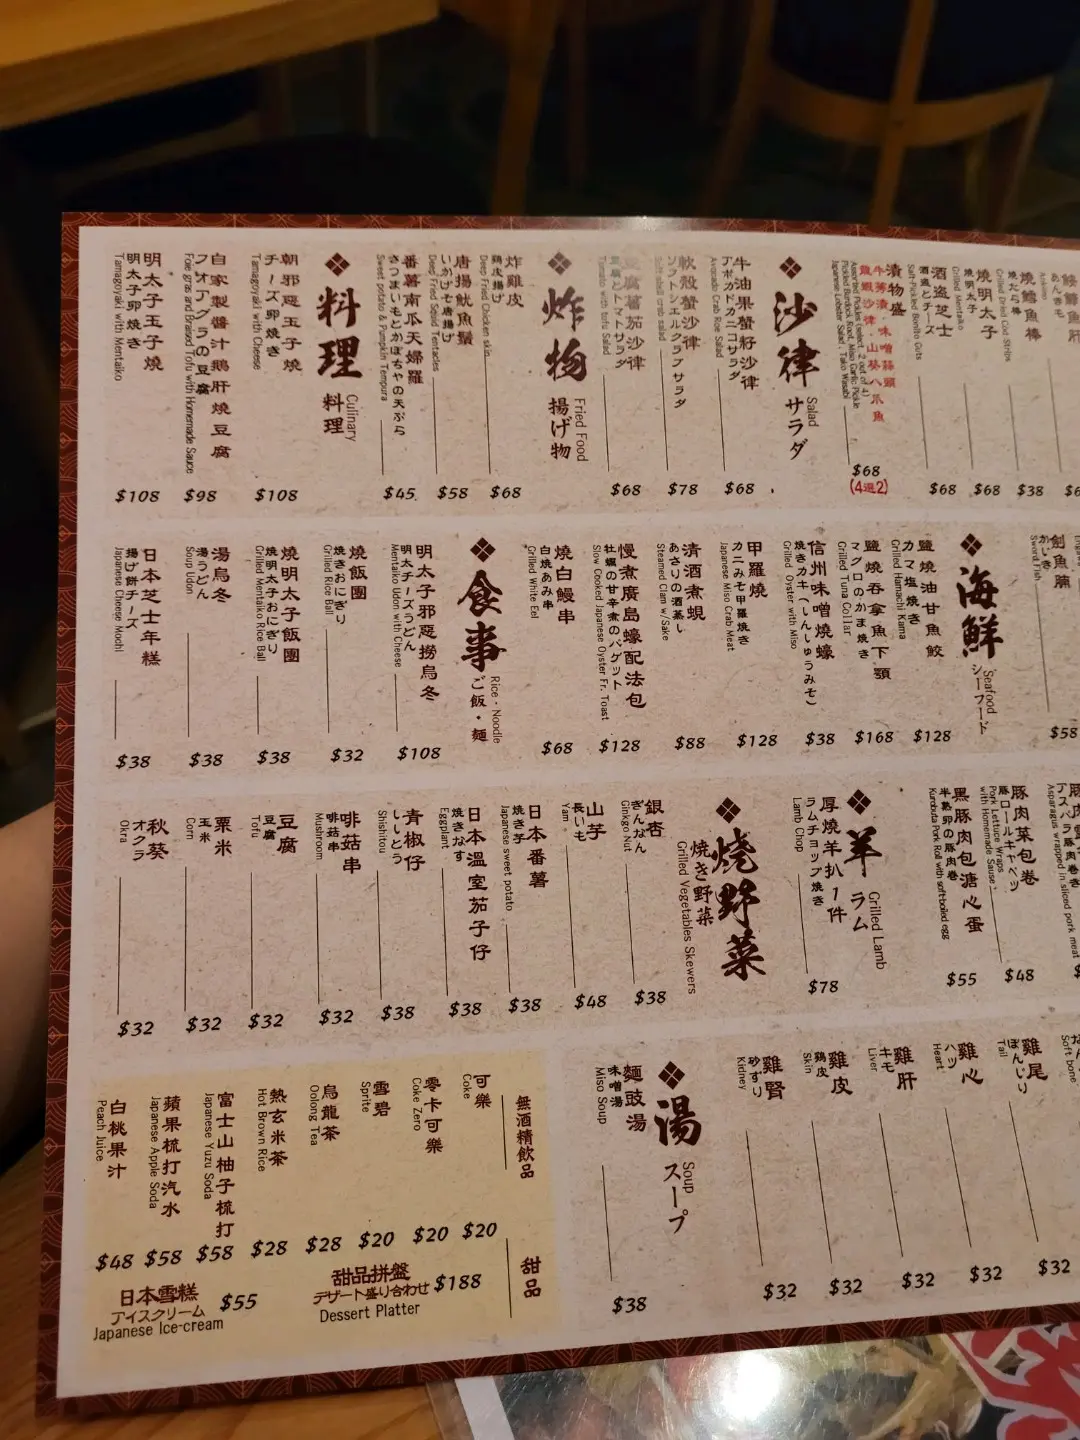 鮟鱇魚肝
あん肝
Ankimo
$6
燒鱈魚棒
焼たら棒
Grilled Dried Cod Strips
$38
燒明太子
焼明太子
Grilled Mentaiko
$68
酒盜芝士
酒盗とチーズ
Salt-Pickled Bonito Guts
$68
漬物盛
牛蒡漬·味噌蒜頭
龍蝦沙律·山葵八爪魚
Assorted Pickles (select 2 out of 4)
Pickled Burdock Root, Miso Garlic Pickle
Japanese Lobster Salad, Tako Wasabi
$68
(4選2)
沙律
サラダ
Salad
牛油果蟹籽沙律
アボカドカニコサラダ
Avocado Crab Rice Salad
$68
軟殼蟹沙律
ソフトシェルクラブサラダ
Soft shell crab salad
$78
豆腐蕃茄沙律
豆腐とトマトサラダ
Tomato with tofu Salad
$68
炸物
揚げ物
Fried Food
炸雞皮
鶏皮揚げ
Deep Fried Chicken skin
$68
唐揚魷魚鬚
いかげそ唐揚げ
Deep Fried Squid Tentacles
$58
番薯南瓜天婦羅
さつまいもとかぼちゃの天ぷら
Sweet potato & Pumpkin Tempura
$45
料理
料理
Culinary
朝邪惡玉子燒
チーズ卵焼き
Tamagoyaki with Cheese
$108
自家製醬汁鵝肝燒豆腐
フォアグラの豆腐
Foie gras and Braised Tofu with Homemade Sauce
$98
明太子玉子燒
明太子卵焼き
Tamagoyaki with Mentaiko
$108
劍魚腩
かじき
Sword Fish
$58
海鮮
シーフード
Seafood
鹽燒油甘魚鮫
カマ塩焼き
Grilled Hamachi Kama
$128
鹽燒吞拿魚下顎
マグロのかま焼き
Grilled Tuna Collar
$168
信州味噌燒蠔
焼きカキ(しんしゅうみそ)
Grilled Oyster with Miso
$38
甲羅燒
カニみそ甲羅焼き
Japanese Miso Crab Meat
$128
清酒煮蜆
あさりの酒蒸し
Steamed Clam w/Sake
$88
慢煮廣島蠔配法包
牡蠣の甘辛煮のバゲット
Slow Cooked Japanese Oyster Fr. Toast
$128
燒白鰻串
白焼あみ串
Grilled White Eel
$68
食事
ご飯・麺
Rice・Noodle
明太子邪惡撈烏冬
明太子チーズうどん
Mentaiko Udon with Cheese
$108
燒飯團
焼きおにぎり
Grilled Rice Ball
$32
燒明太子飯團
焼明太子おにぎり
Grilled Mentaiko Rice Ball
$38
湯烏冬
湯うどん
Soup Udon
$38
日本芝士年糕
揚げ餅チーズ
Japanese Cheese Mochi
$38
アスパラ豚肉巻き
Asparagus wrapped in sliced pork meat
豚肉菜包卷
豚ロールキャベツ
Pork Lettuce Wraps
with Homemade Sause
$48
黑豚肉包溏心蛋
半熟卵の豚肉巻
Kurobuta Pork Roll with soft-boiled egg
$55
羊
ラム
Grilled Lamb
厚燒羊扒1件
ラムチョップ焼き
Lamb Chop
$78
燒野菜
焼き野菜
Grilled Vegetables Skewers
銀杏
ぎんなん
Ginkgo Nut
$38
山芋
長いも
Yam
$48
日本番薯
焼き芋
Japanese sweet potato
$38
日本溫室茄子仔
焼きなす
Eggplant
$38
青椒仔
ししとう
Shishitou
$38
啡菇串
啡菇串
Mushroom
$32
豆腐
豆腐
Tofu
$32
粟米
玉米
Corn
$32
秋葵
オクラ
Okra
$32
Soft bone
雞尾
ぼんじり
Tail
$32
雞心
ハツ
Heart
$32
雞肝
キモ
Liver
$32
雞皮
鶏皮
Skin
$32
雞腎
砂ずり
Kidney
$32
湯
スープ
Soup
麵豉湯
味噌湯
Miso Soup
$38
無酒精飲品
可樂
Coke
$20
零卡可樂
Coke Zero
$20
雪碧
Sprite
$20
烏龍茶
Oolong Tea
$28
熱玄米茶
Hot Brown Rice
$28
富士山柚子梳打
Japanese Yuzu Soda
$58
蘋果梳打汽水
Japanese Apple Soda
$58
白桃果汁
Peach Juice
$48
甜品
甜品拼盤
デザート盛り合わせ
Dessert Platter
$188
日本雪糕
アイスクリーム
Japanese Ice-cream
$55